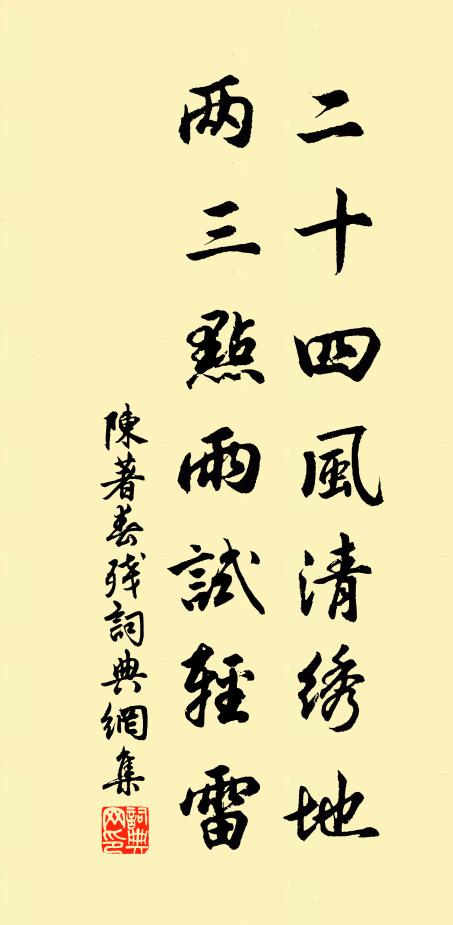 二十四風清绣地
两三點雨試輕雷
陳著春残詞典網集
詞典網印